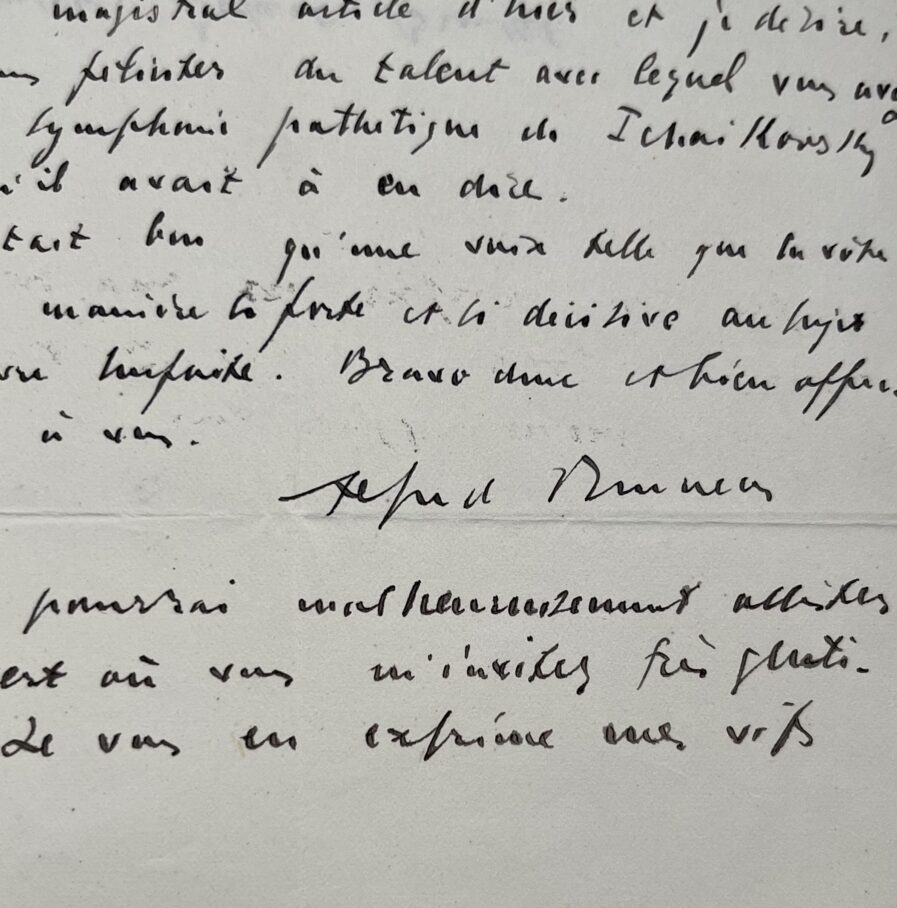 magistral article d'hier et je désire,
féliciter du talent avec lequel vous avez
symphonie pathétique de Tchaikovsky
'il avait à en dire.
tait bon qu'une voix telle que la vôtre
manière si forte et si décisive au sujet
surfaite. Bravo donc et bien affec-
à vous.
Alfred Bruneau
pourrai malheureusement assister
ert où vous m'invitez très genti-
Je vous en exprime mes vifs